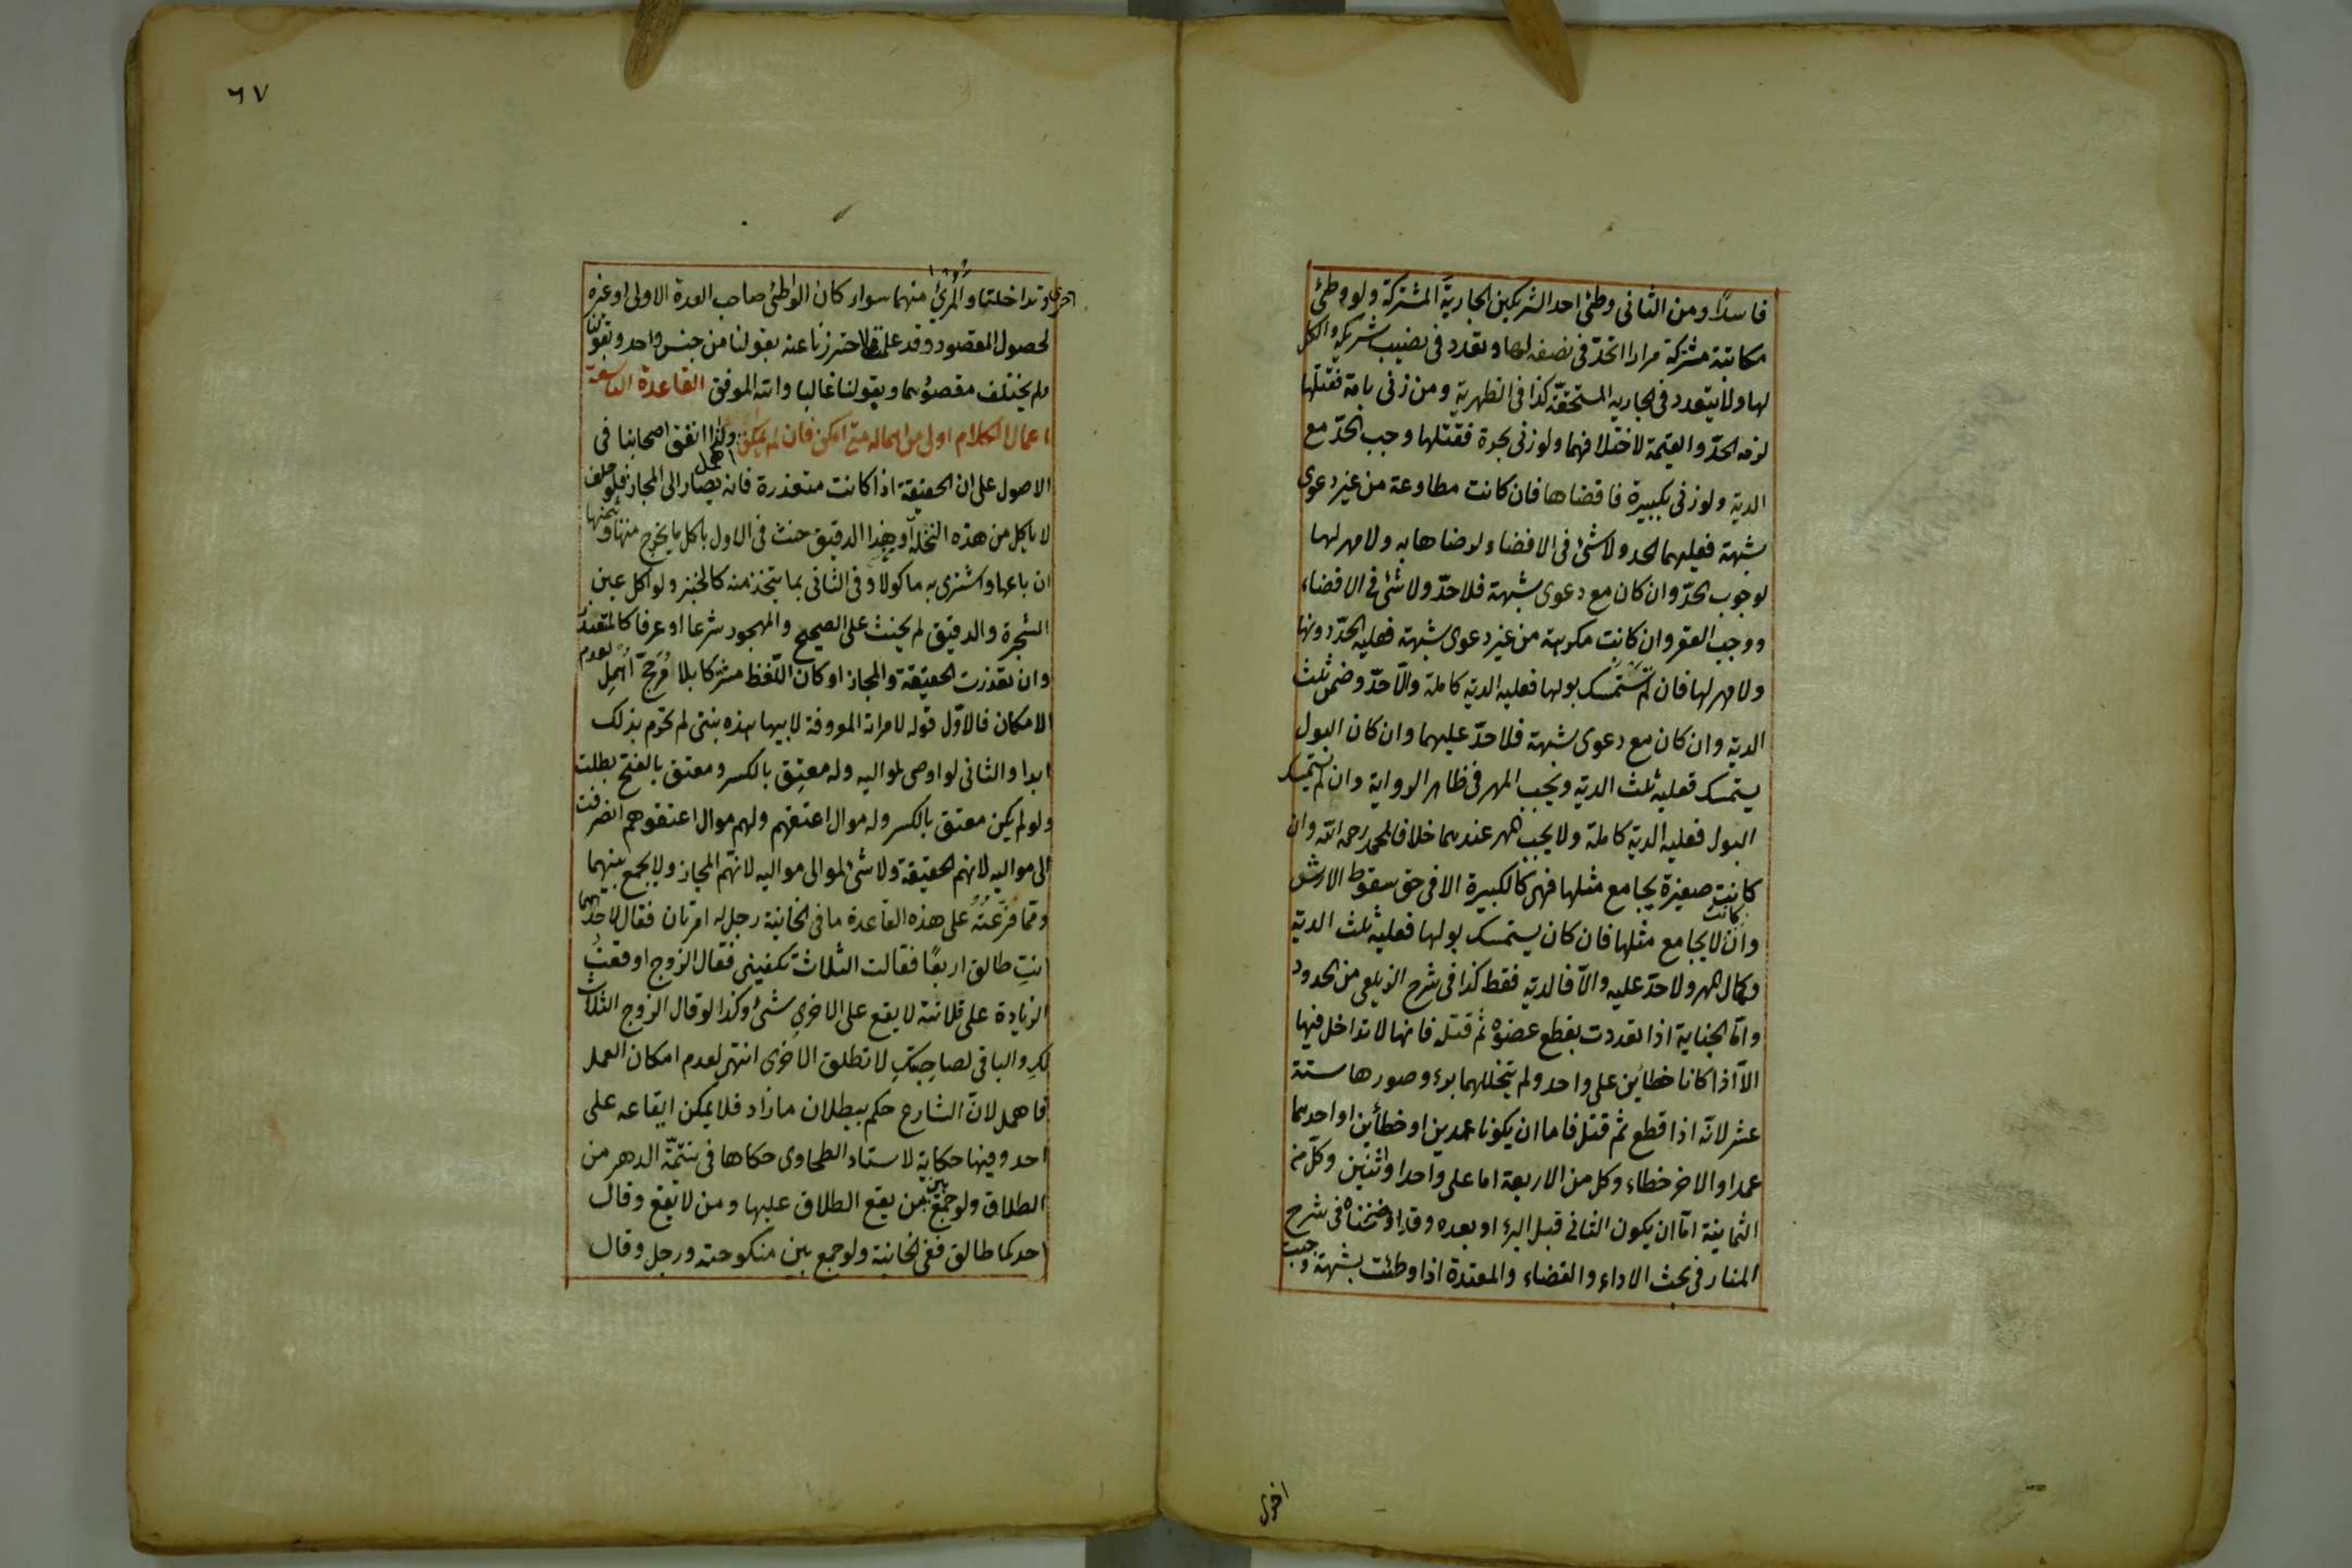 فاسدًا ومن الثانى وطئ احد الشريكين الجارية المشتركة ولو وطئ
مكاتبة مشتركة مرارا اتحد فى نصفه لها وتعدد فى نصيب شريكه والكل
لها ولا يتعدد فى الجارية المستحقة كذا فى الظهرية ومن زنى بامة فقتلها
لزمه الحدّ والقيمة لاختلافهما ولو زنى بحرة فقتلها وجب الحدّ مع
الدية ولو زنى بكبيرة فافضاها فان كانت مطاوعة من غير دعوى
شبهة فعليهما الحد ولا شئ فى الافضاء لرضاها به ولا مهر لها
لوجوب الحدّ وان كان مع دعوى شبهة فلا حدّ ولا شئ فى الافضاء
ووجب العقر وان كانت مكرهة من غير دعوى شبهة فعليه الحدّ دونها
ولا مهر لها فان لم تستمسك بولها فعليه الدية كاملة والّا حدّ وضمن ثلث
الدية وان كان مع دعوى شبهة فلا حدّ عليهما وان كان البول
يستمسك فعليه ثلث الدية ويجب المهر فى ظاهر الرواية وان لم يستمسك
البول فعليه الدية كاملة ولا يجب مهر عندهما خلافا لمحمد رحمه الله وان
كانت صغيرة يجامع مثلها فهى كالكبيرة الا فى حق سقوط الارش
وان كانت لا يجامع مثلها فان كان يستمسك بولها فعليه ثلث الدية
وكمال المهر ولا حدّ عليه والّا فالدية فقط كذا فى شرح الزيلعى من الحدود
وامّا الجناية اذا تعددت بقطع عضوه ثم قتله فانها لا تداخل فيها
الّا اذا كانا خطأين على واحد ولم يتخللهما برء وصورها ستة
عشر لانّه اذا قطع ثم قتل فاما ان يكونا عمدين او خطأين او احدهما
عمدا والاخر خطاء وكل من الاربعة اما على واحد او اثنين وكلّ من
الثمانية امّا ان يكون الثانى قبل البرء او بعده وقد اوضحناه فى شرح
المنار فى بحث الاداء والقضاء والمعتدة اذا وطئت بشبهة وجبت
اخرى
٦٧
اخرى وتداخلتا والمرئ منهما سواء كان الواطئ صاحب العدة الاولى او غيره
لحصول المقصود وقد علمت ما احترزنا عنه بقولنا من جنس واحد وبقولنا
ولم يختلف مقصودهما وبقولنا غالبا والله الموفق القاعدة التاسعة
اعمال الكلام اولى من اهماله متى امكن فان لم يمكن اهمل ولذا اتفق اصحابنا فى
الاصول على ان الحقيقة اذا كانت متعذرة فانه يصار الى المجاز فلو حلف
لا ياكل من هذه النخلة او هذا الدقيق حنث فى الاول باكل ما يخرج منها وبثمنها
ان باعها واشترى به ماكولا وفى الثانى بما يتخذ منه كالخبز ولو اكل عين
الشجرة والدقيق لم يحنث على الصحيح والمهجور شرعا او عرفا كالمتعذر
وان تعذرت الحقيقة والمجاز او كان اللّفظ مشتركا بلا مرجّح اُهمِل لعدم
الامكان فالاوّل قوله لامراته المعروفة لابيها هذه بنتى لم تحرم بذلك
ابدا والثانى لو اوصى لمواليه وله معتِق بالكسر ومعتق بالفتح بطلت
ولو لم يكن معتق بالكسر وله موال اعتقهم ولهم موال اعتقوهم انصرفت
الى مواليه لانهم الحقيقة ولا شئ لموالى مواليه لانّهم المجاز ولا يجمع بينهما
وممّا فرّعته على هذه القاعدة ما فى الخانية رجل له امرتان فقال لاحدهما
انتِ طالق اربعًا فقالت الثلاث تكفينى فقال الزوج اوقعتُ
الزيادة على فلانة لا يقع على الاخرى شئ وكذا لو قال الزوج الثلاث
لكِ والباقى لصاحِبتكِ لا تطلق الاخرى انتهى لعدم امكان العمل
فاهمل لانّ الشارع حكم ببطلان ما زاد فلا يمكن ايقاعه على
احد وفيها حكاية لاستاد الطحاوى حكاها فى يتيمة الدهر من
الطلاق ولو جمع بين من يقع الطلاق عليها ومن لا يقع وقال
احدكما طالق ففى الخانية ولو جمع بين منكوحته ورجل وقال